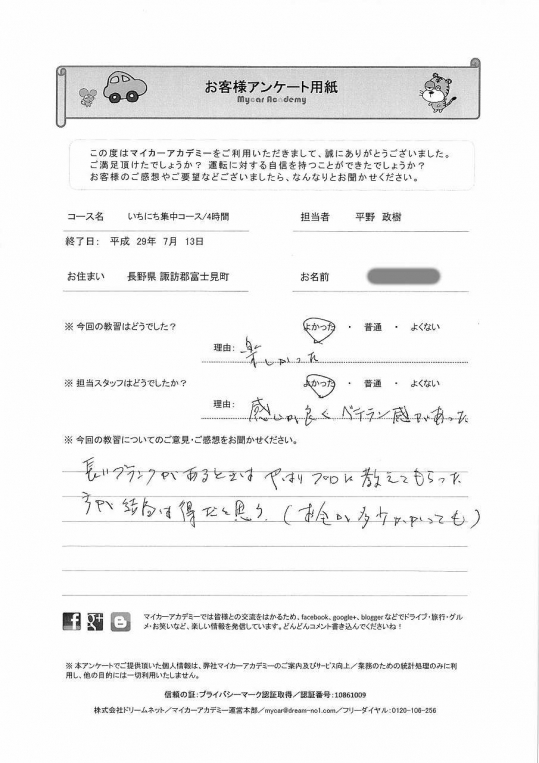 お客様アンケート用紙
Mycar Academy
この度はマイカーアカデミーをご利用いただきまして、誠にありがとうございました。
ご満足頂けたでしょうか？ 運転に対する自信を持つことができたでしょうか？
お客様のご感想やご要望などございましたら、なんなりとお聞かせください。
コース名 いちにち集中コース/4時間 担当者 平野 政樹
終了日： 平成 29年 7月 13日
お住まい 長野県 諏訪郡富士見町 お名前
※ 今回の教習はどうでした？ よかった ・ 普通 ・ よくない
理由： 楽しかった
※ 担当スタッフはどうでしたか？ よかった ・ 普通 ・ よくない
理由： 感じが良くベテラン感があった
※ 今回の教習についてのご意見・ご感想をお聞かせください。
長いブランクがあるときは やはりプロに教えてもらった
方が結局は得だと思う。(お金が多少かかっても)
マイカーアカデミーでは皆様との交流をはかるため、facebook、google+、bloggerなどでドライブ・旅行・グル
メ・お笑いなど、楽しい情報を発信しています。どんどんコメント書き込んでくださいね！
※ 本アンケートでご提供頂いた個人情報は、弊社マイカーアカデミーのご案内及びサービス向上／業務のための統計処理のみに利
用し、他の目的には一切利用いたしません。
信頼の証：プライバシーマーク認証取得／認証番号：10861009
株式会社ドリームネット／マイカーアカデミー運営本部／mycar@dream-no1.com／フリーダイヤル：0120-106-256